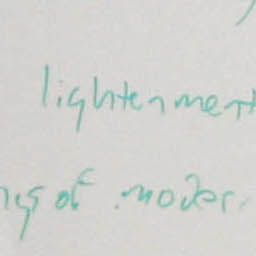 lightenment
ngs of moder